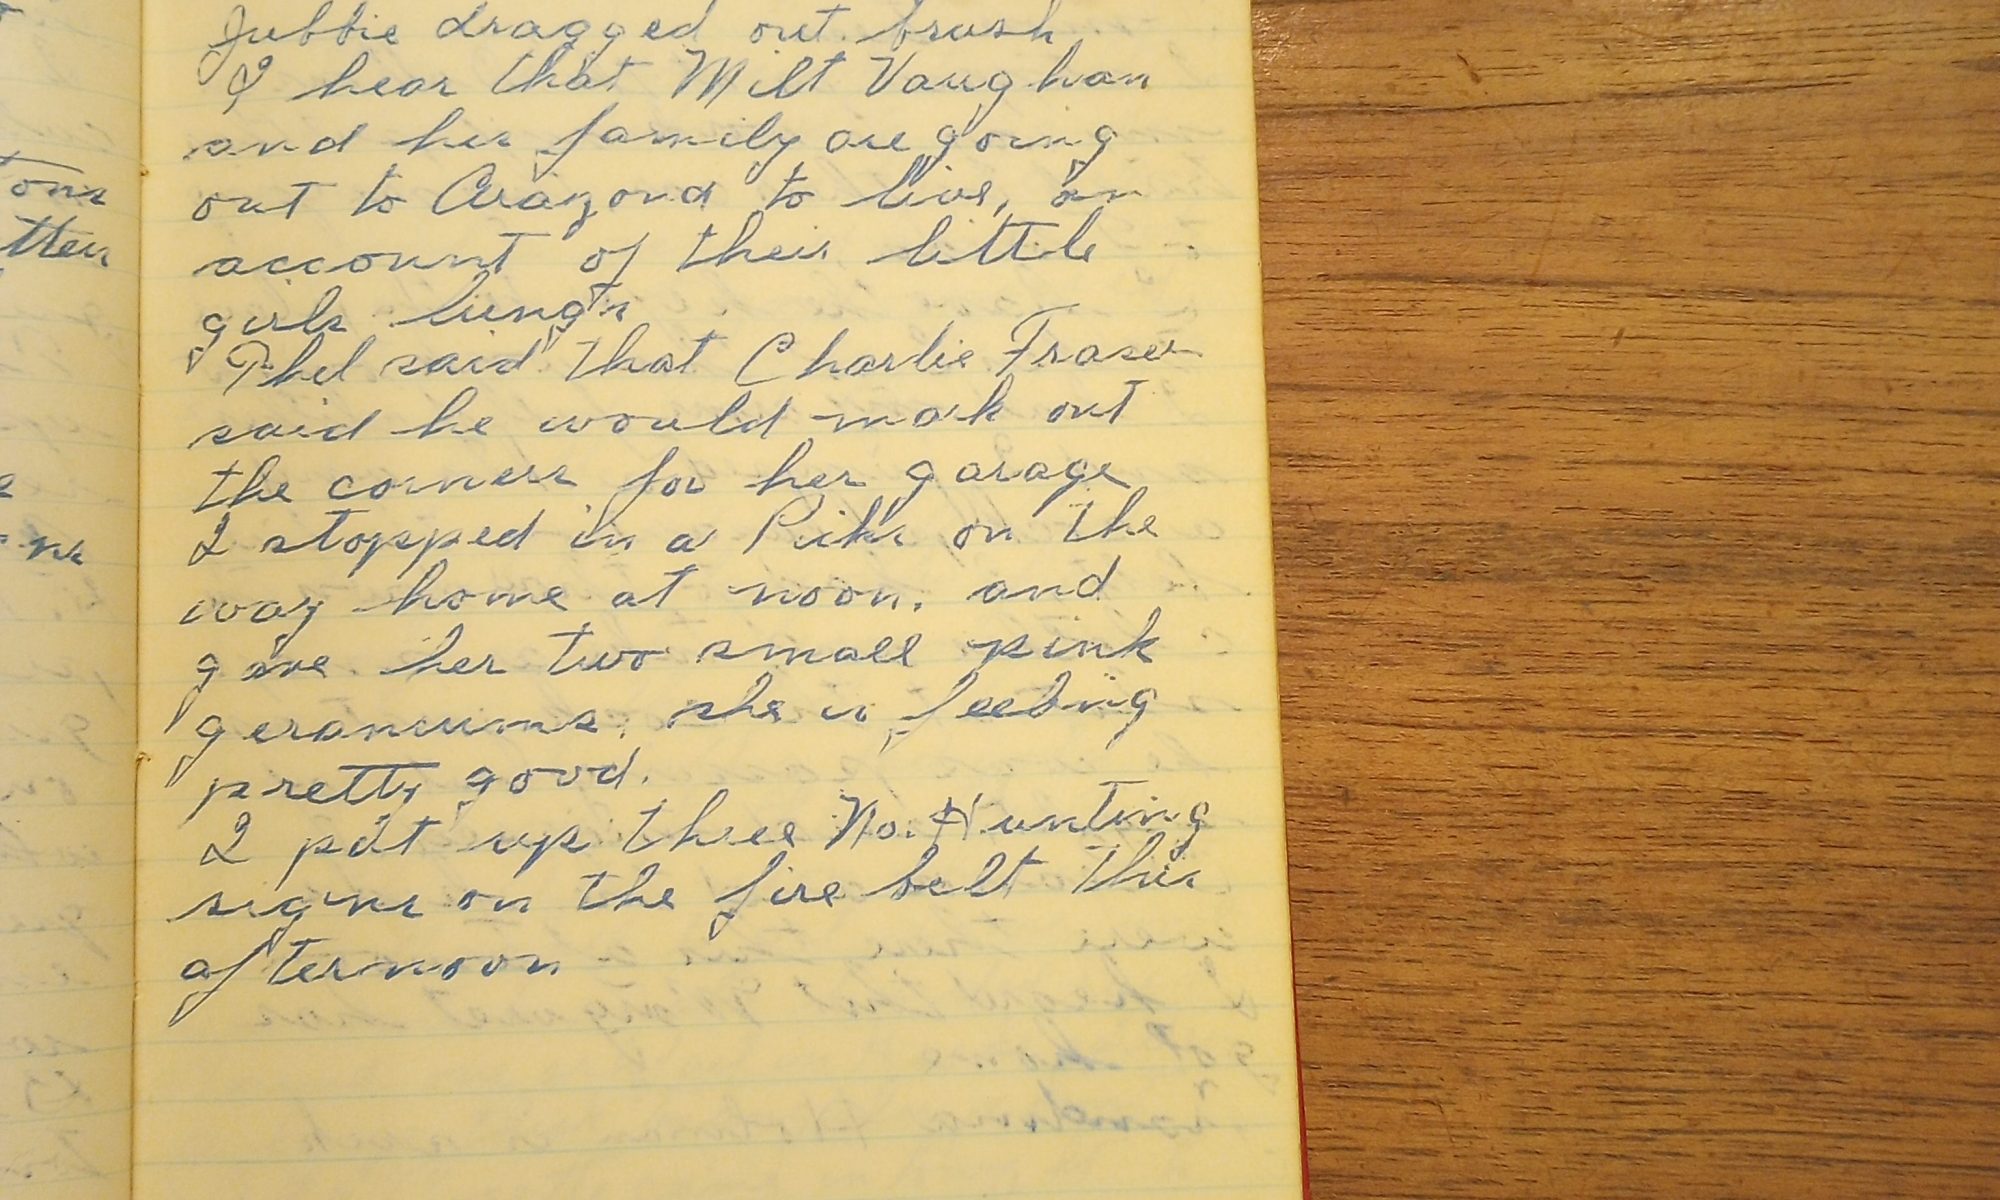 Jubbie dragged out brush
I hear that Milt Vaughan
and his family are going
out to Arazona to live, on
account of their little
girls lung's
Phel said that Charlie Fraser
said he would mark out
the corners for her garage
I stopped in a Piks on the
way home at noon. and
gave her two small pink
geraniums. she is feeling
pretty good.
I put up three No. Hunting
signs on the fire belt this
afternoon